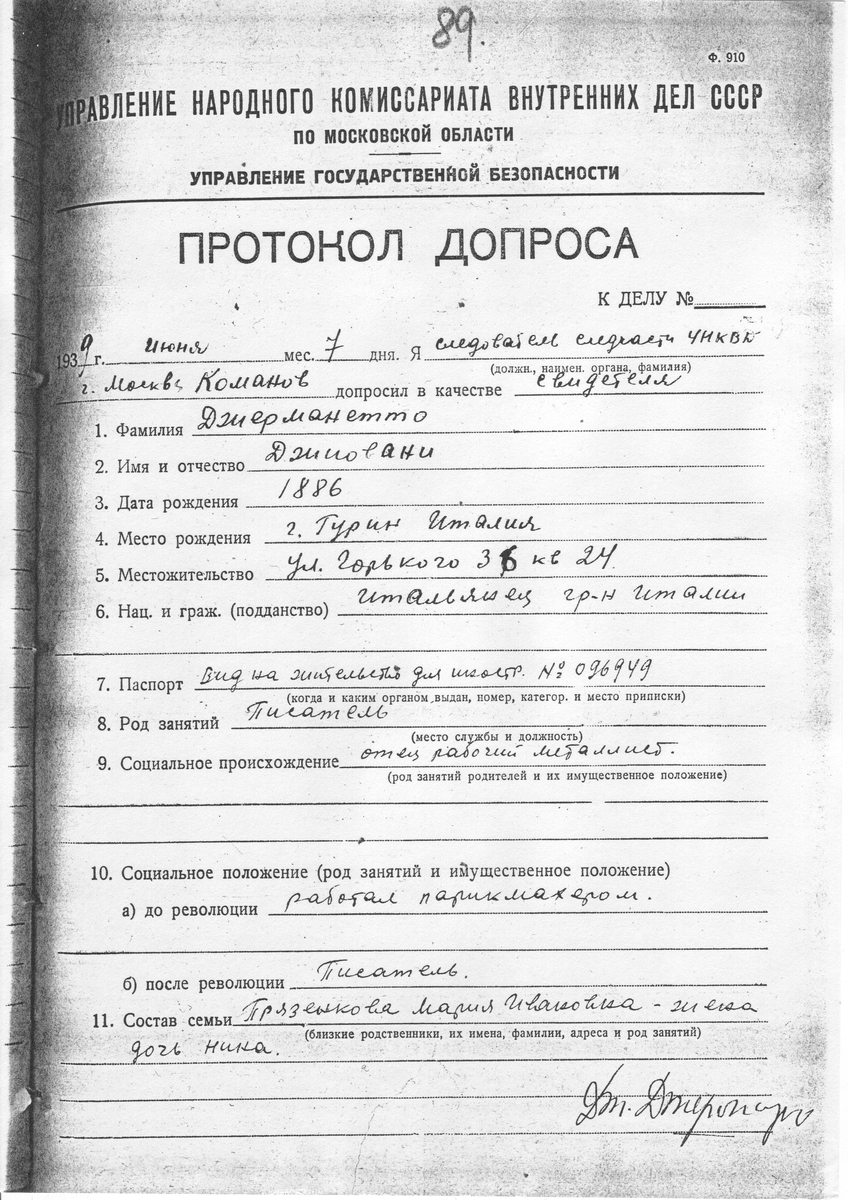 89.
Ф. 910
УПРАВЛЕНИЕ НАРОДНОГО КОМИССАРИАТА ВНУТРЕННИХ ДЕЛ СССР
ПО МОСКОВСКОЙ ОБЛАСТИ
УПРАВЛЕНИЕ ГОСУДАРСТВЕННОЙ БЕЗОПАСНОСТИ
ПРОТОКОЛ ДОПРОСА
К ДЕЛУ №
1939 г. июня мес. 7 дня. Я следователь следчасти УНКВД
(должн., наимен. органа, фамилия)
г. Москвы Команов допросил в качестве свидетеля
1. Фамилия Джерманетто
2. Имя и отчество Джиовани
3. Дата рождения 1886
4. Место рождения г. Турин Италия
5. Местожительство ул. Горького 36 кв 24
6. Нац. и граж. (подданство) Итальянец гр-н Италии
7. Паспорт Вид на жительство для иностр. № 096949
(когда и каким органом выдан, номер, категор. и место приписки)
8. Род занятий Писатель
(место службы и должность)
9. Социальное происхождение отец рабочий металлист.
(род занятий родителей и их имущественное положение)
10. Социальное положение (род занятий и имущественное положение)
а) до революции работал парикмахером.
б) после революции Писатель.
11. Состав семьи Грязенкова Мария Ивановна - жена
(близкие родственники, их имена, фамилии, адреса и род занятий)
дочь Нина.